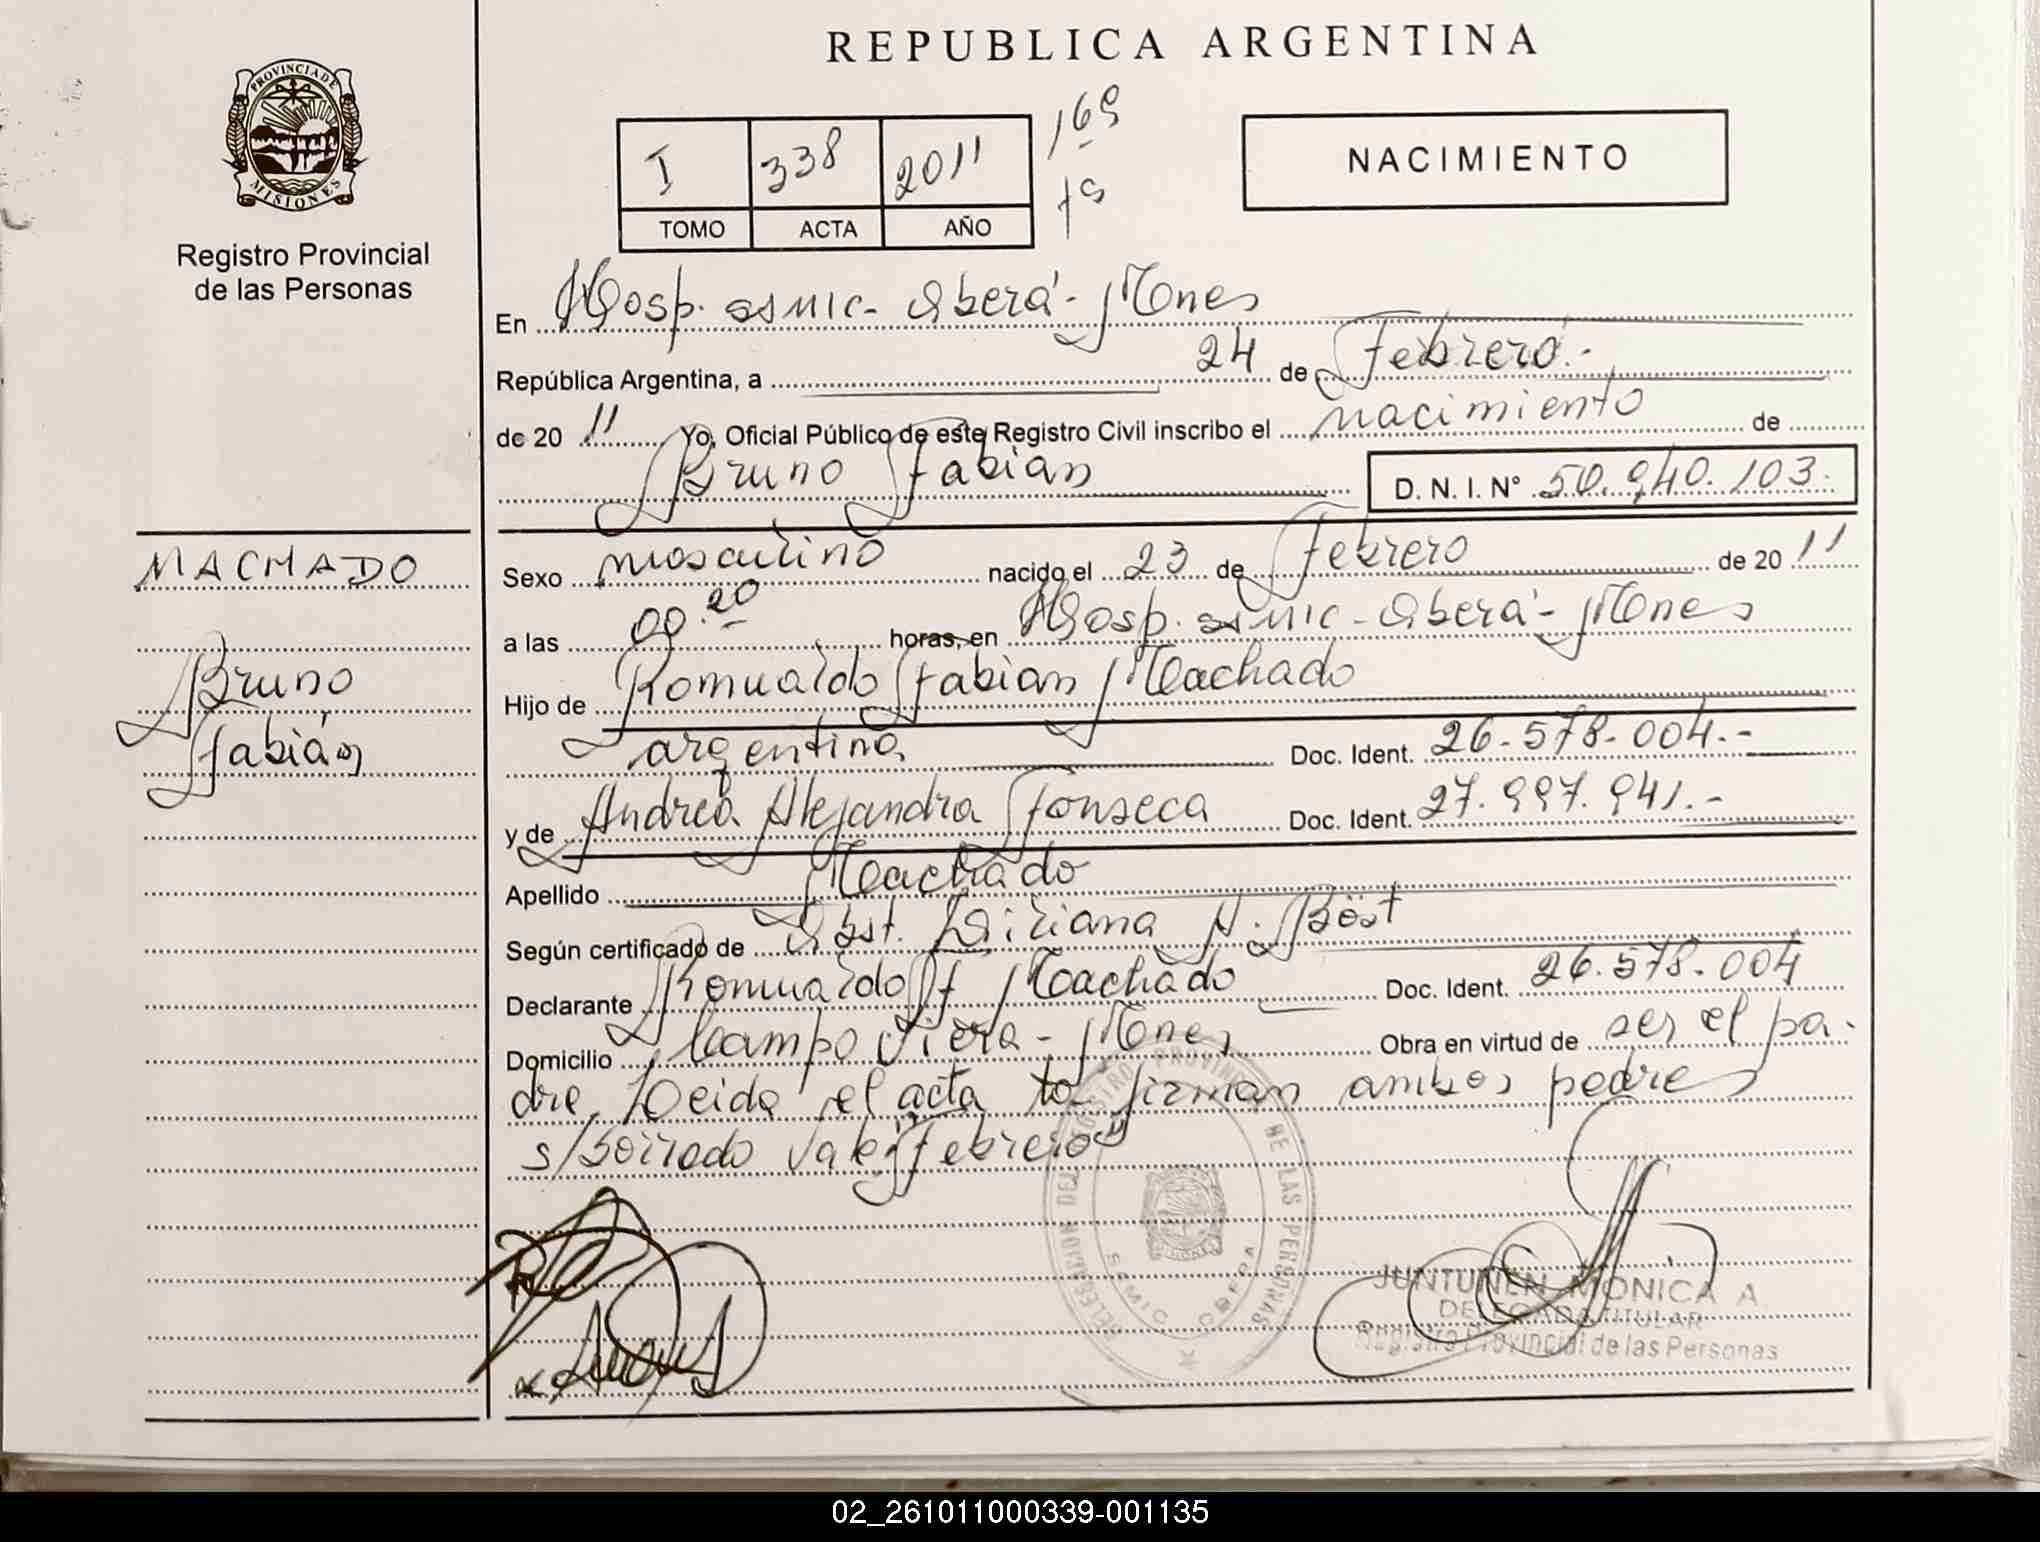 REPUBLICA ARGENTINA
PROVINCIA DE
MISIONES
Registro Provincial
de las Personas
I 338 2011
TOMO ACTA AÑO
169
NACIMIENTO
En Hosp. Samic - Oberá - Mnes
República Argentina, a 24 de Febrero.-
de 20 11 Yo, Oficial Público de este Registro Civil inscribo el nacimiento de
Bruno Fabian D. N. I. N° 50.940.103.
MACHADO
Bruno
Fabián
Sexo masculino nacido el 23 de Febrero de 20 11
a las 00.20 horas, en Hosp. Samic - Oberá - Mnes
Hijo de Romualdo Fabian Machado
argentino Doc. Ident. 26.578.004.-
y de Andrea Alejandra Fonseca Doc. Ident. 27.997.941.-
Apellido Machado
Según certificado de Obst. Liliana N. Böst
Declarante Romualdo F Machado Doc. Ident. 26.578.004
Domicilio Campo Viera - Mnes Obra en virtud de ser el pa-
dre. Leida el acta la firman ambos padres
s/borrado Vale "Febrero"
DELEGACION DEL REGISTRO PROVINCIAL DE LAS PERSONAS
SAMIC OBERA
JUNTUNEN MONICA A.
DELEGADA TITULAR
Registro Provincial de las Personas
02_261011000339-001135